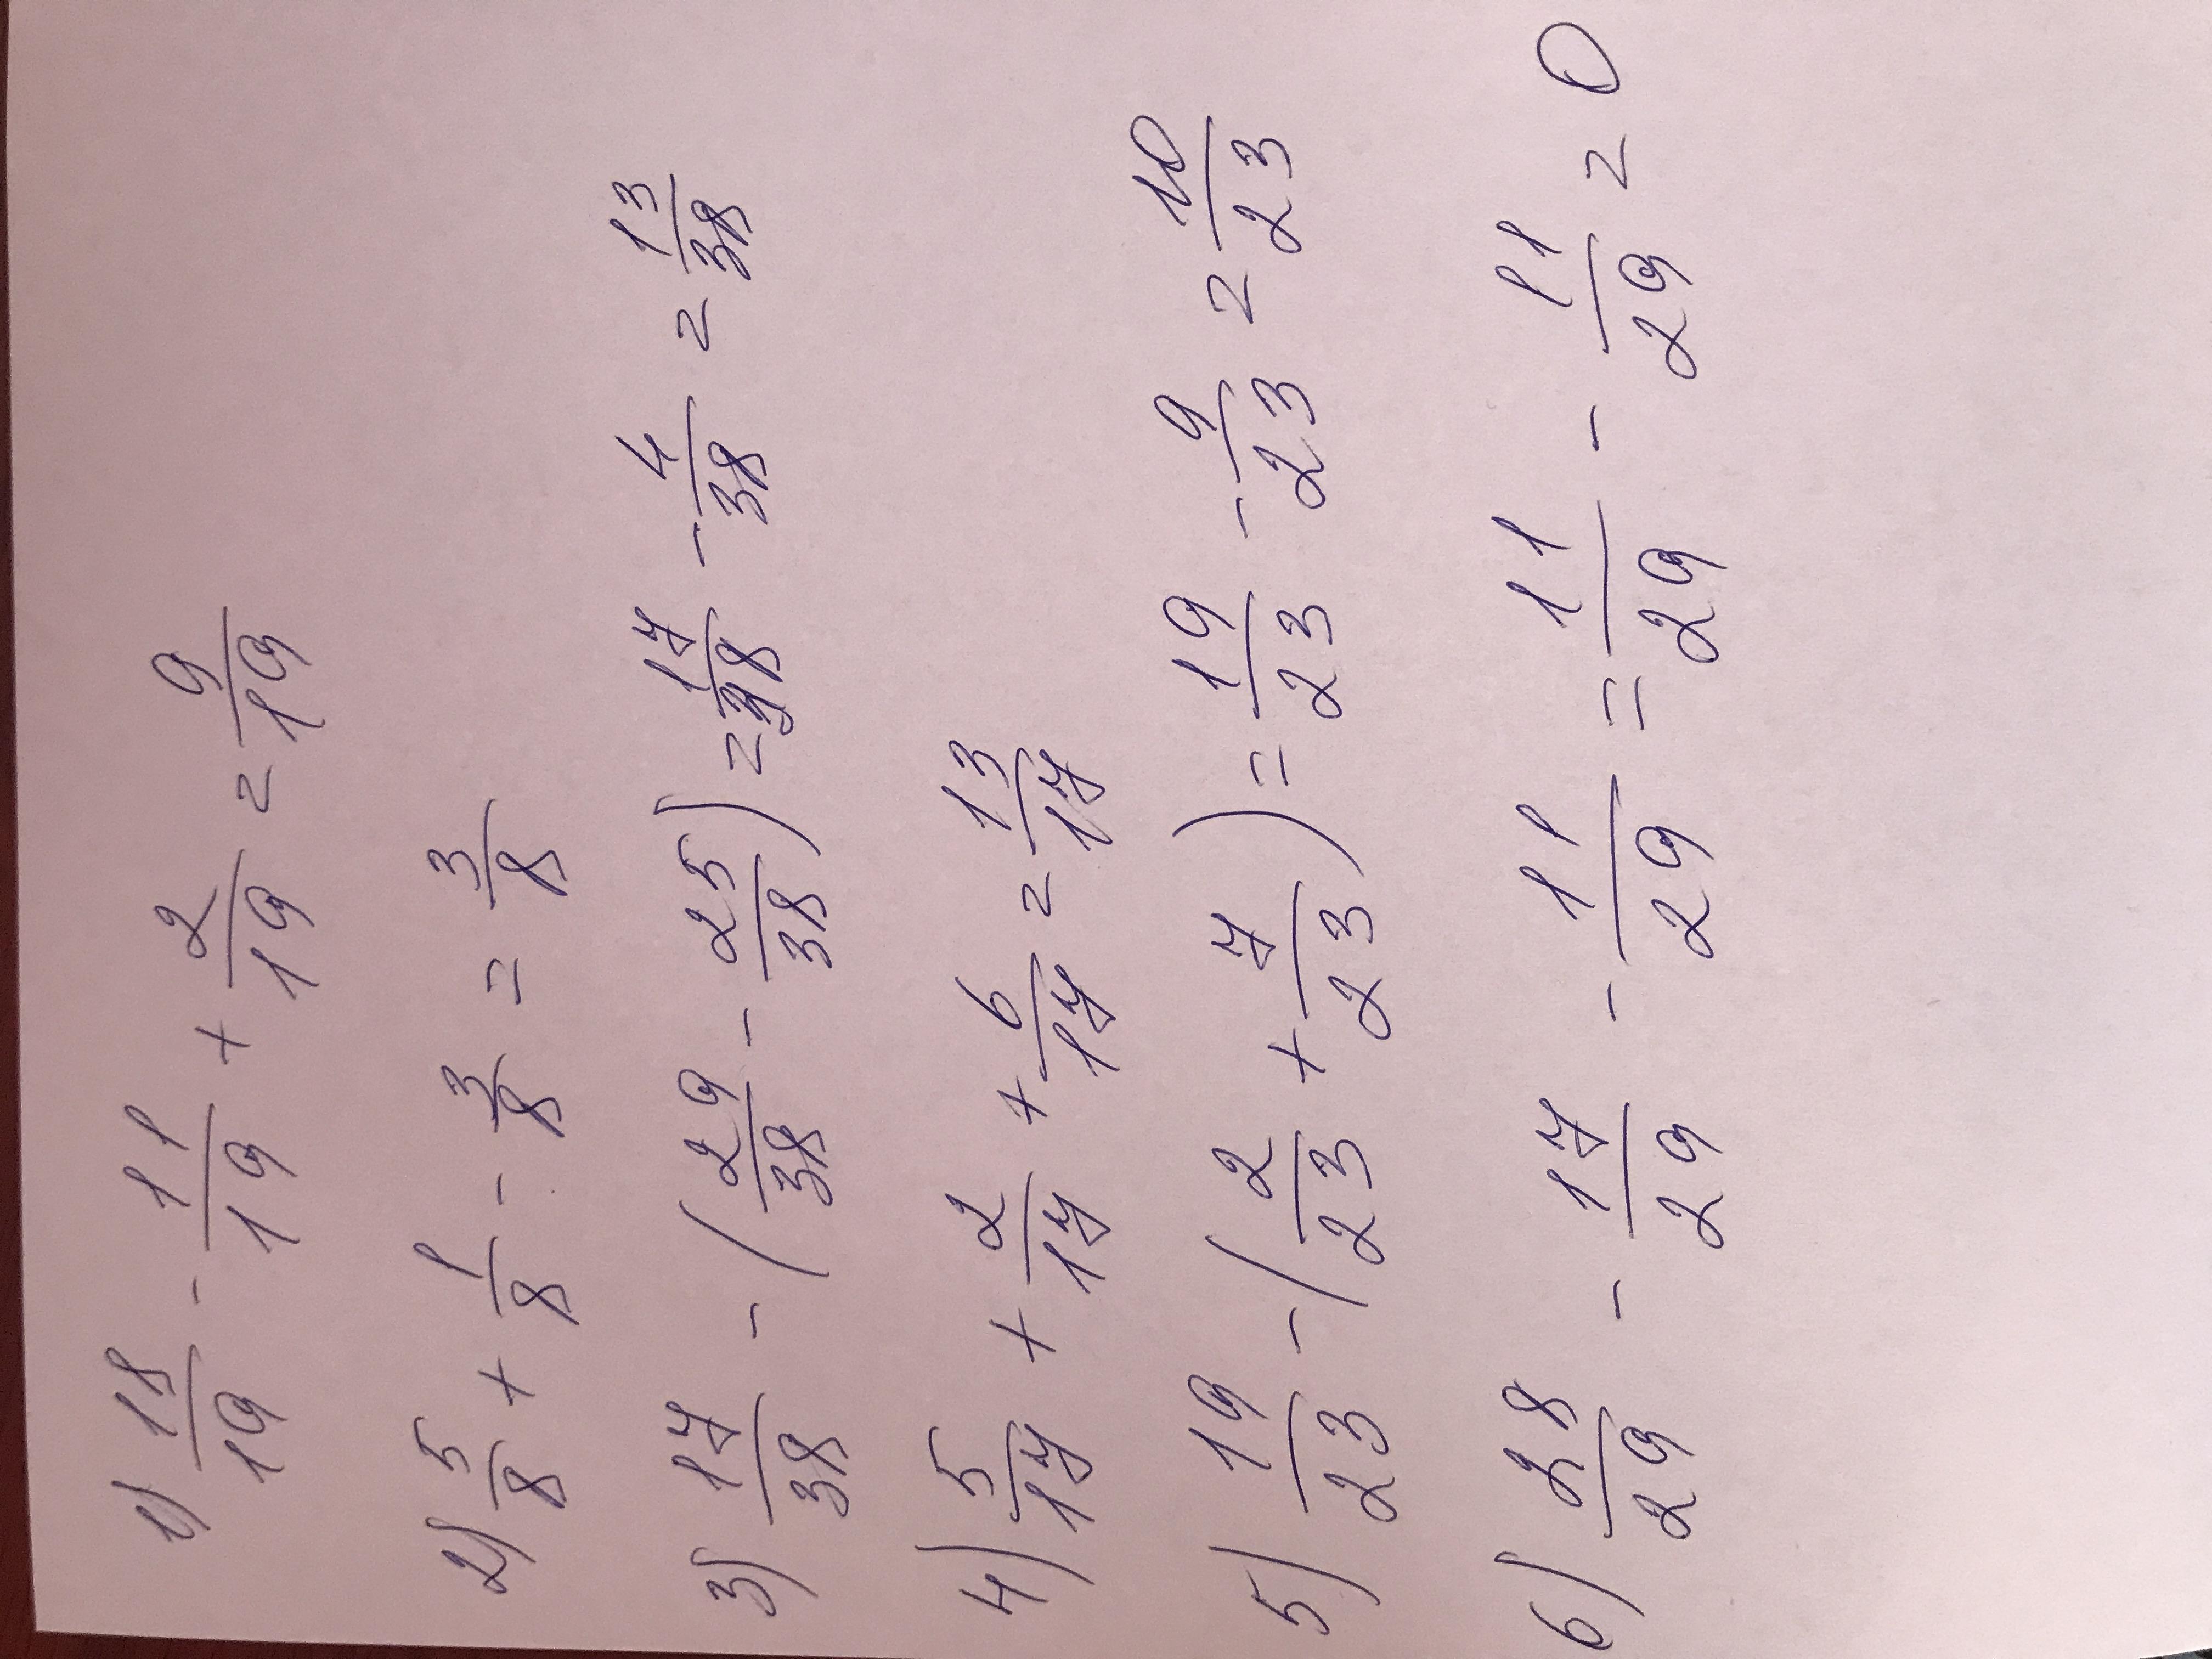 1) 18/19 - 11/19 + 2/19 = 9/19
2) 5/8 + 1/8 - 3/8 = 3/8
3) 17/38 - (29/38 - 25/38) = 17/38 - 4/38 = 13/38
4) 5/17 + 2/17 + 6/17 = 13/17
5) 19/23 - (2/23 + 7/23) = 19/23 - 9/23 = 10/23
6) 28/29 - 17/29 - 11/29 = 11/29 - 11/29 = 0